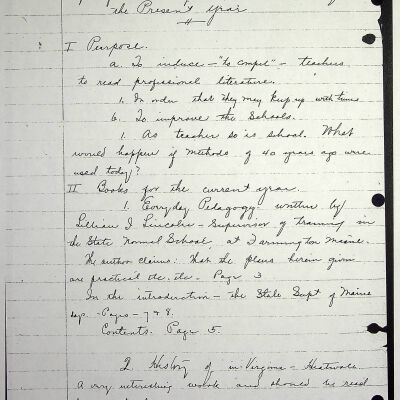 the Present year
I Purpose.
a. To induce - "to compel" - teachers
to read professional literature.
1. In order that they may keep up with times
b. To improve the Schools.
1. As teacher so is school. What
would happen if methods of 40 years ago were
used today?
II Books for the current year.
1. Everyday Pedagogy written by
Lillian I Lincoln - Supervisor of training in
the State Normal School, at Farmington Maine.
The author claims: that the plans herein given
are practical etc. etc. Page 3
In the introduction - the State Supt of Maine
says - Pages - 7 & 8.
Contents. Page 5.
2. History of in Virginia - Heatwole
A very interesting work and should be read